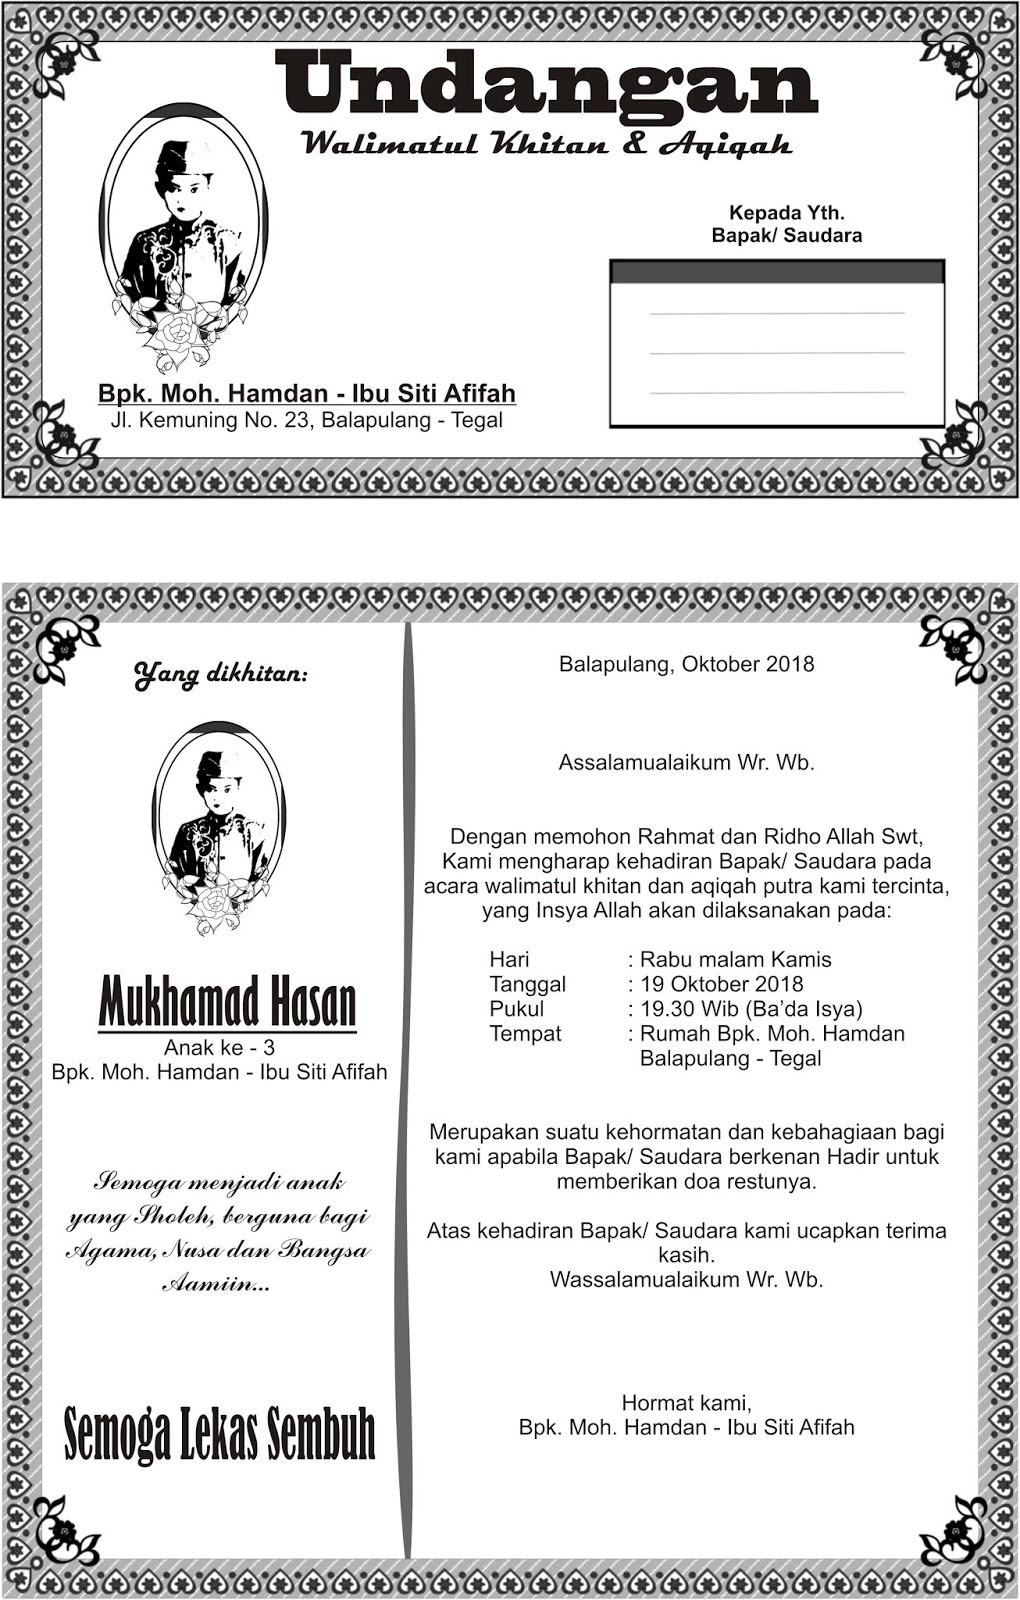 Undangan
Walimatul Khitan & Aqiqah
Kepada Yth.
Bapak/ Saudara
Bpk. Moh. Hamdan - Ibu Siti Afifah
Jl. Kemuning No. 23, Balapulang - Tegal
Yang dikhitan:
Mukhamad Hasan
Anak ke - 3
Bpk. Moh. Hamdan - Ibu Siti Afifah
Semoga menjadi anak
yang Sholeh, berguna bagi
Agama, Nusa dan Bangsa
Aamiin...
Semoga Lekas Sembuh
Balapulang, Oktober 2018
Assalamualaikum Wr. Wb.
Dengan memohon Rahmat dan Ridho Allah Swt,
Kami mengharap kehadiran Bapak/ Saudara pada
acara walimatul khitan dan aqiqah putra kami tercinta,
yang Insya Allah akan dilaksanakan pada:
Hari : Rabu malam Kamis
Tanggal : 19 Oktober 2018
Pukul : 19.30 Wib (Ba’da Isya)
Tempat : Rumah Bpk. Moh. Hamdan
Balapulang - Tegal
Merupakan suatu kehormatan dan kebahagiaan bagi
kami apabila Bapak/ Saudara berkenan Hadir untuk
memberikan doa restunya.
Atas kehadiran Bapak/ Saudara kami ucapkan terima
kasih.
Wassalamualaikum Wr. Wb.
Hormat kami,
Bpk. Moh. Hamdan - Ibu Siti Afifah